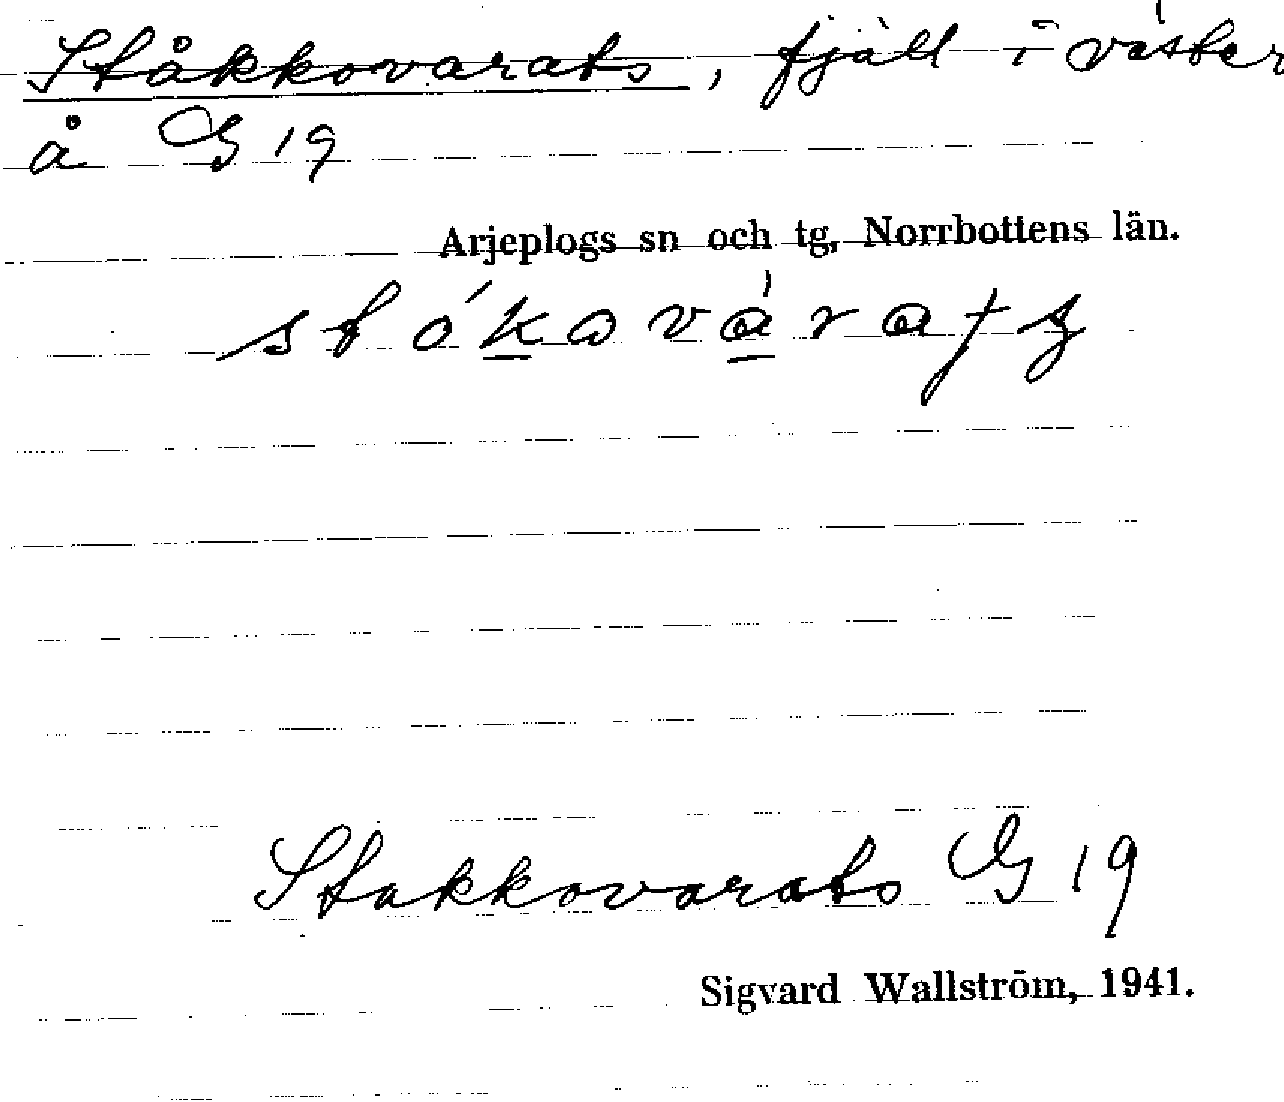 Ståkkovarats, fjäll i väster
å G 19
Arjeplogs sn och tg, Norrbottens län.
stókavárats
Stakkovarats G 19
Sigvard Wallström, 1941.